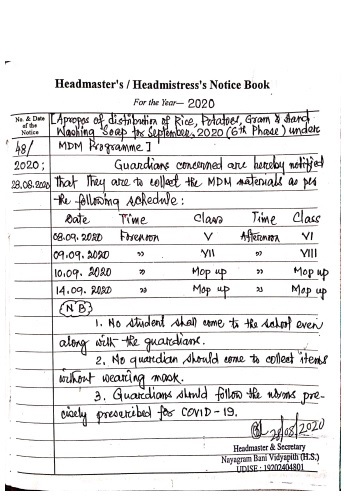 Headmaster's / Headmistress's Notice Book
For the Year— 2020
No. & Date of the Notice
[Apropos of distribution of Rice, Potatoes, Gram & Hand
Washing Soap for September, 2020 (6th Phase) under
48/ MDM Programme.]
2020; Guardians concerned are hereby notified
28.08.2020 that they are to collect the MDM materials as per
the following schedule:
Date Time Class Time Class
08.09.2020 Forenoon V Afternoon VI
09.09.2020 " VII " VIII
10.09.2020 " Mop up " Mop up
14.09.2020 " Mop up " Mop up
(N B)
1. No student shall come to the school even
along with the guardians.
2. No guardian should come to collect items
without wearing mask.
3. Guardians should follow the norms pre-
cisely prescribed for COVID-19.
28/08/2020
Headmaster & Secretary
Nayagram Bani Vidyapith (H.S.)
UDISE : 19202404801